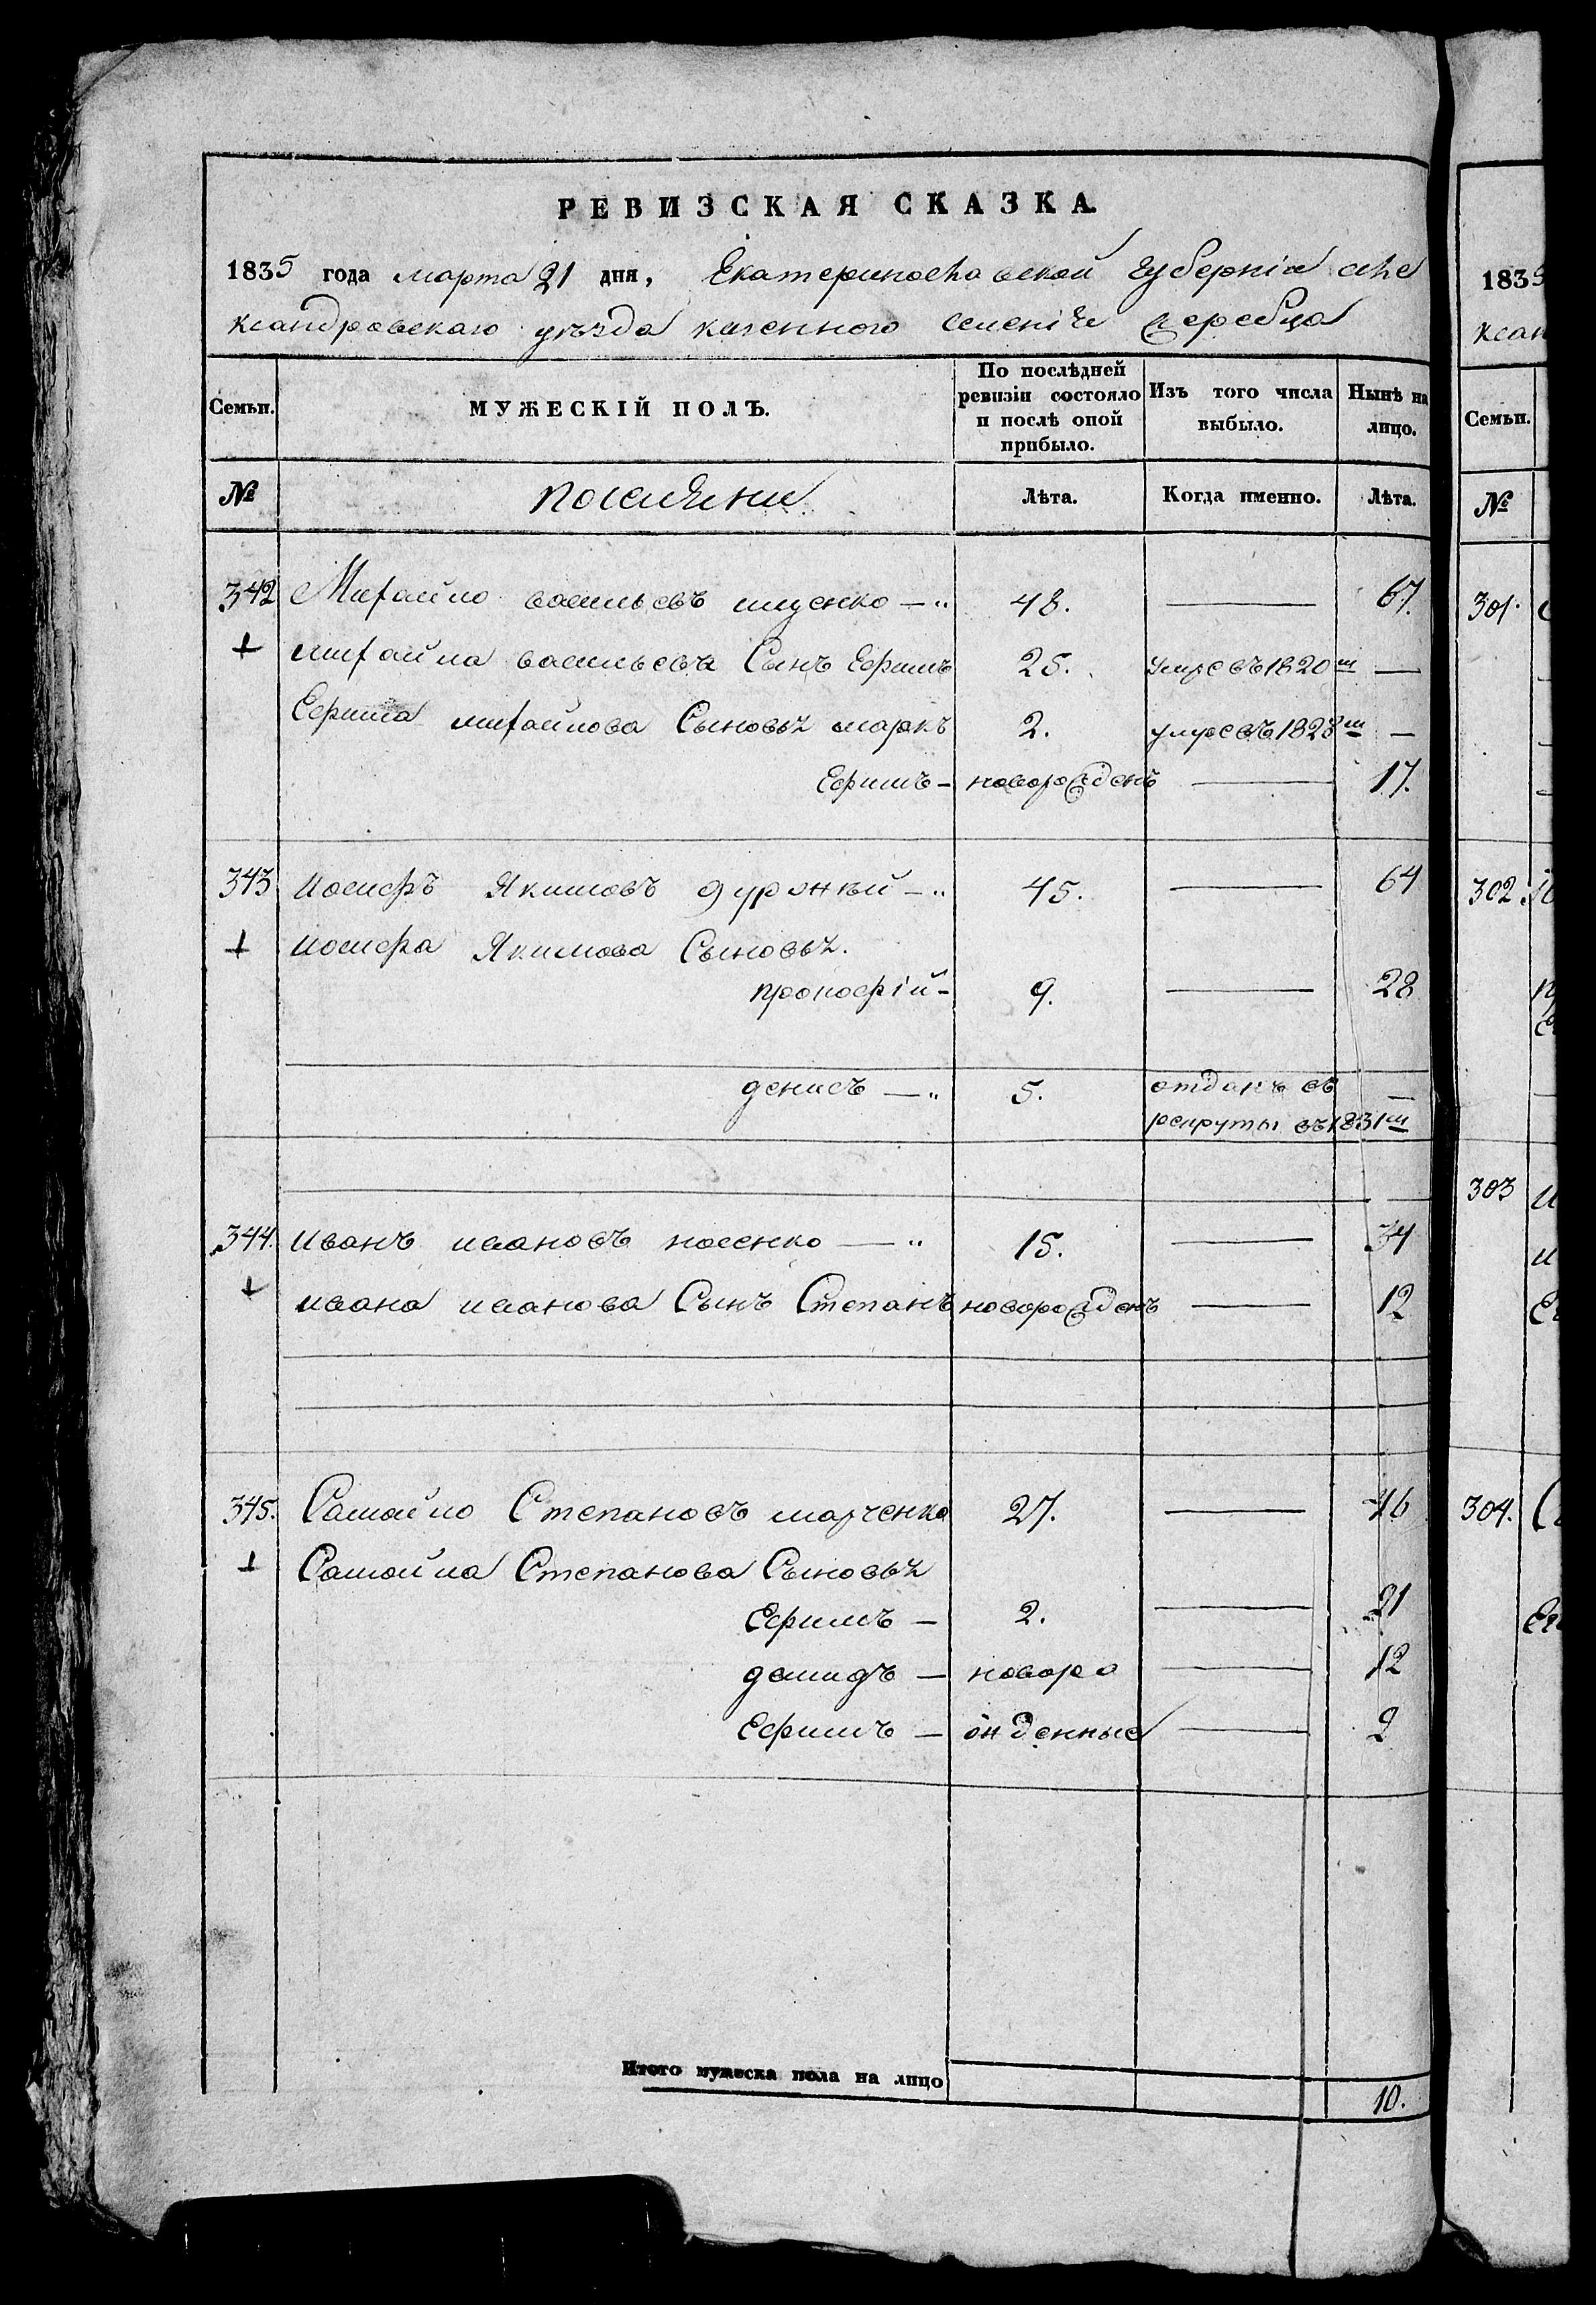 РЕВИЗСКАЯ СКАЗКА.
1835 года марта 21 дня, Екатеринославской губерніи але
ксандровскаго уѣзда казеннаго селенія жеребца
Семьи. МУЖЕСКІЙ ПОЛЪ. По послѣдней ревизіи состояло и послѣ оной прибыло. Изъ того числа выбыло. Нынѣ на лицо.
№ поселяне Лѣта. Когда именно. Лѣта.
342 Михайло васильевъ ищенко — „ 48. — 67.
михайла васильева Сынъ Ефимъ 25. умре въ 1820м —
Ефима михайлова Сыновья маркъ 2. умре въ 1828м —
Ефимъ — новорожденъ — 17.
343 иосифъ Якимовъ дурный — „ 45. — 64
иосифа Якимова Сыновья.
прокофій — 9. — 28
денисъ — „ 5. отданъ въ —
рекруты въ 1831м
344. иванъ ивановъ носенко — „ 15. — 34
ивана иванова Сынъ Степанъ новорожденъ — 12
345. Самойло Степановъ марченко 27. — 46
Самойла Степанова Сыновья
Ефимъ — 2. — 21
демидъ — новоро — 12
Ефимъ — жденные — 2
Итого мужеска пола на лицо 10.
1835
ксан
Семьи.
№
301.
302.
303
304.